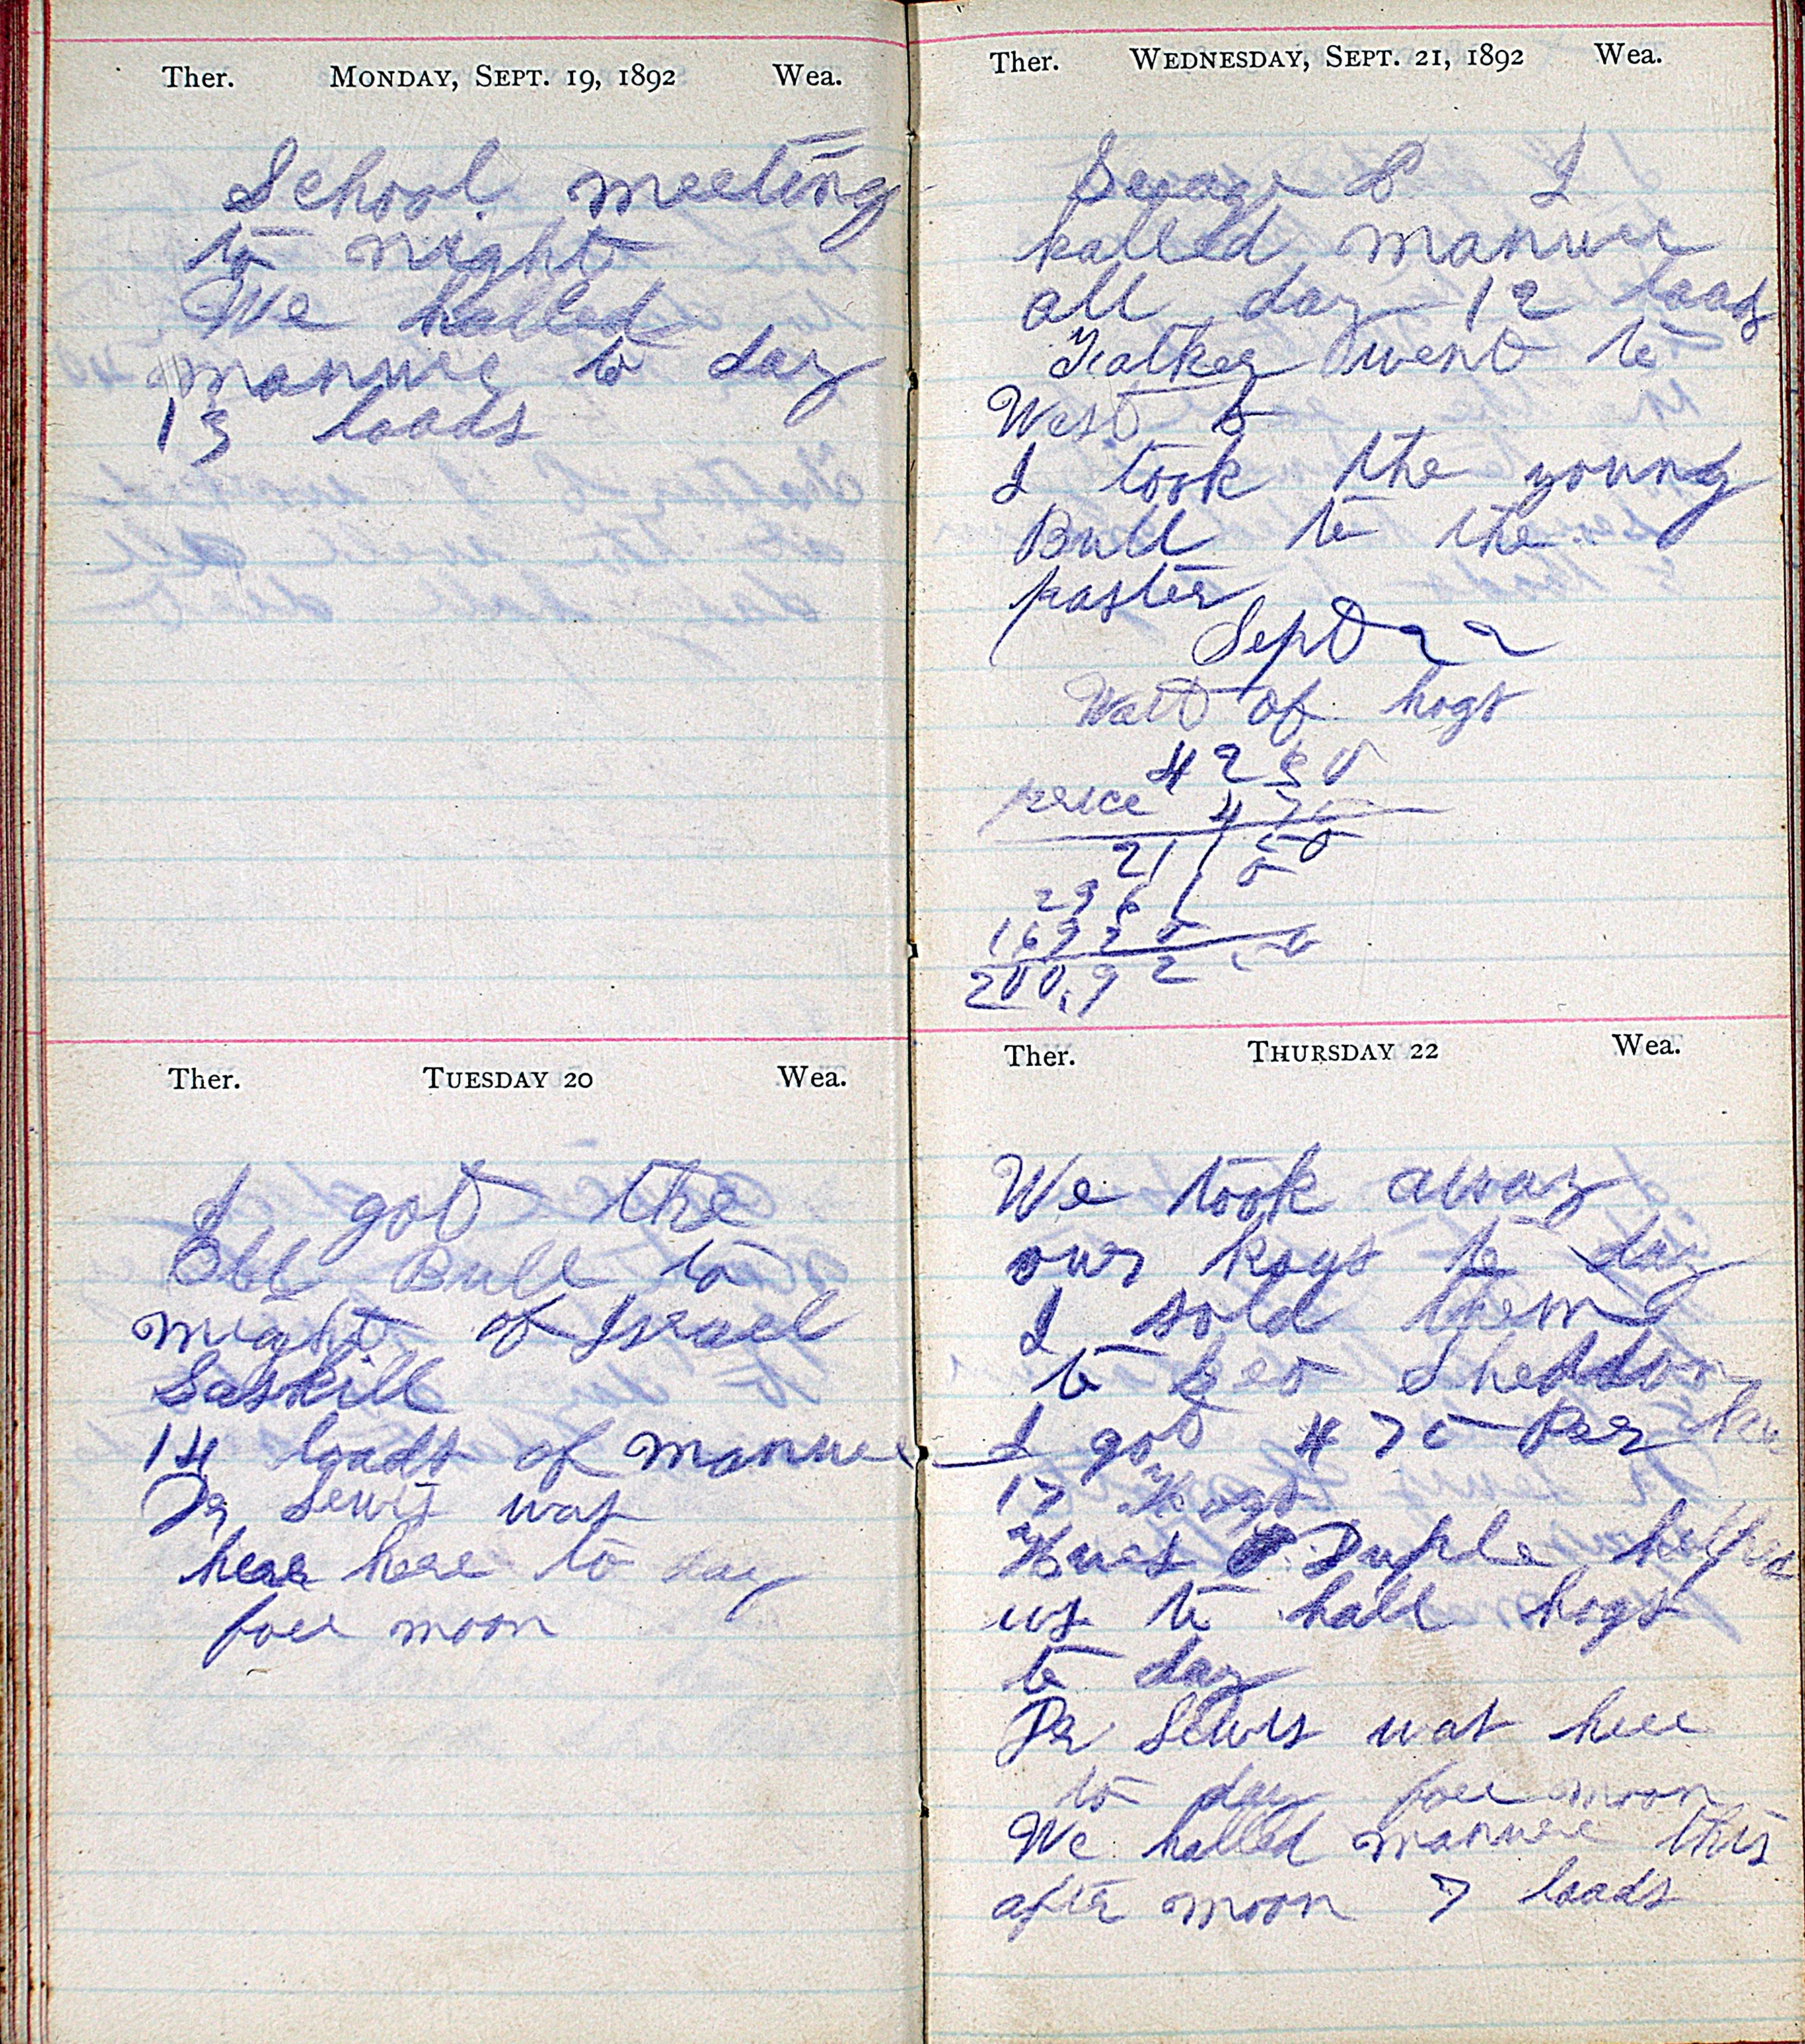 Ther. Monday, Sept. 19, 1892 Wea.
School meeting
to night
We halled
manure to day
13 loads
Ther. Tuesday 20 Wea.
I got the
Old Bull to
might of Israel
Gaskill
14 loads of manure
Dr Lewis was
hear here to day
fore moon
Ther. Wednesday, Sept. 21, 1892 Wea.
& I
halled manure
all day 12 loads
Father went to
West
I took the young
Bull to the
paster
Sept 22
Wait of hogs
4230
price 4 75
21 1 50
296 1
1692 0
200.92 50
Ther. Thursday 22 Wea.
We took away
our hogs to day
I sold them
to Geo Sheddon
I got 4 75 Per
17 Hogs
& Duple helped
us to hall hogs
to day
Dr Lewis was here
to day fore moon
We halled manure this
after moon 7 loads